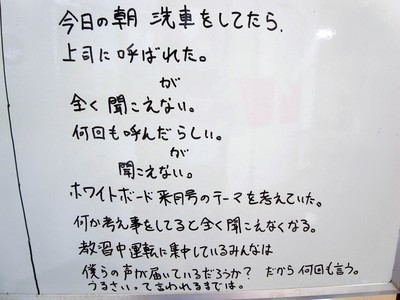 今日の朝 洗車をしてたら、
上司に呼ばれた。
が
全く聞こえない。
何回も呼んだらしい。
が
聞こえない。
ホワイトボード来月号のテーマを考えていた。
何か考え事をしてると全く聞こえなくなる。
教習中運転に集中しているみんなは
僕らの声が届いているだろうか? だから何回も言う。
うるさいって言われるまでは。